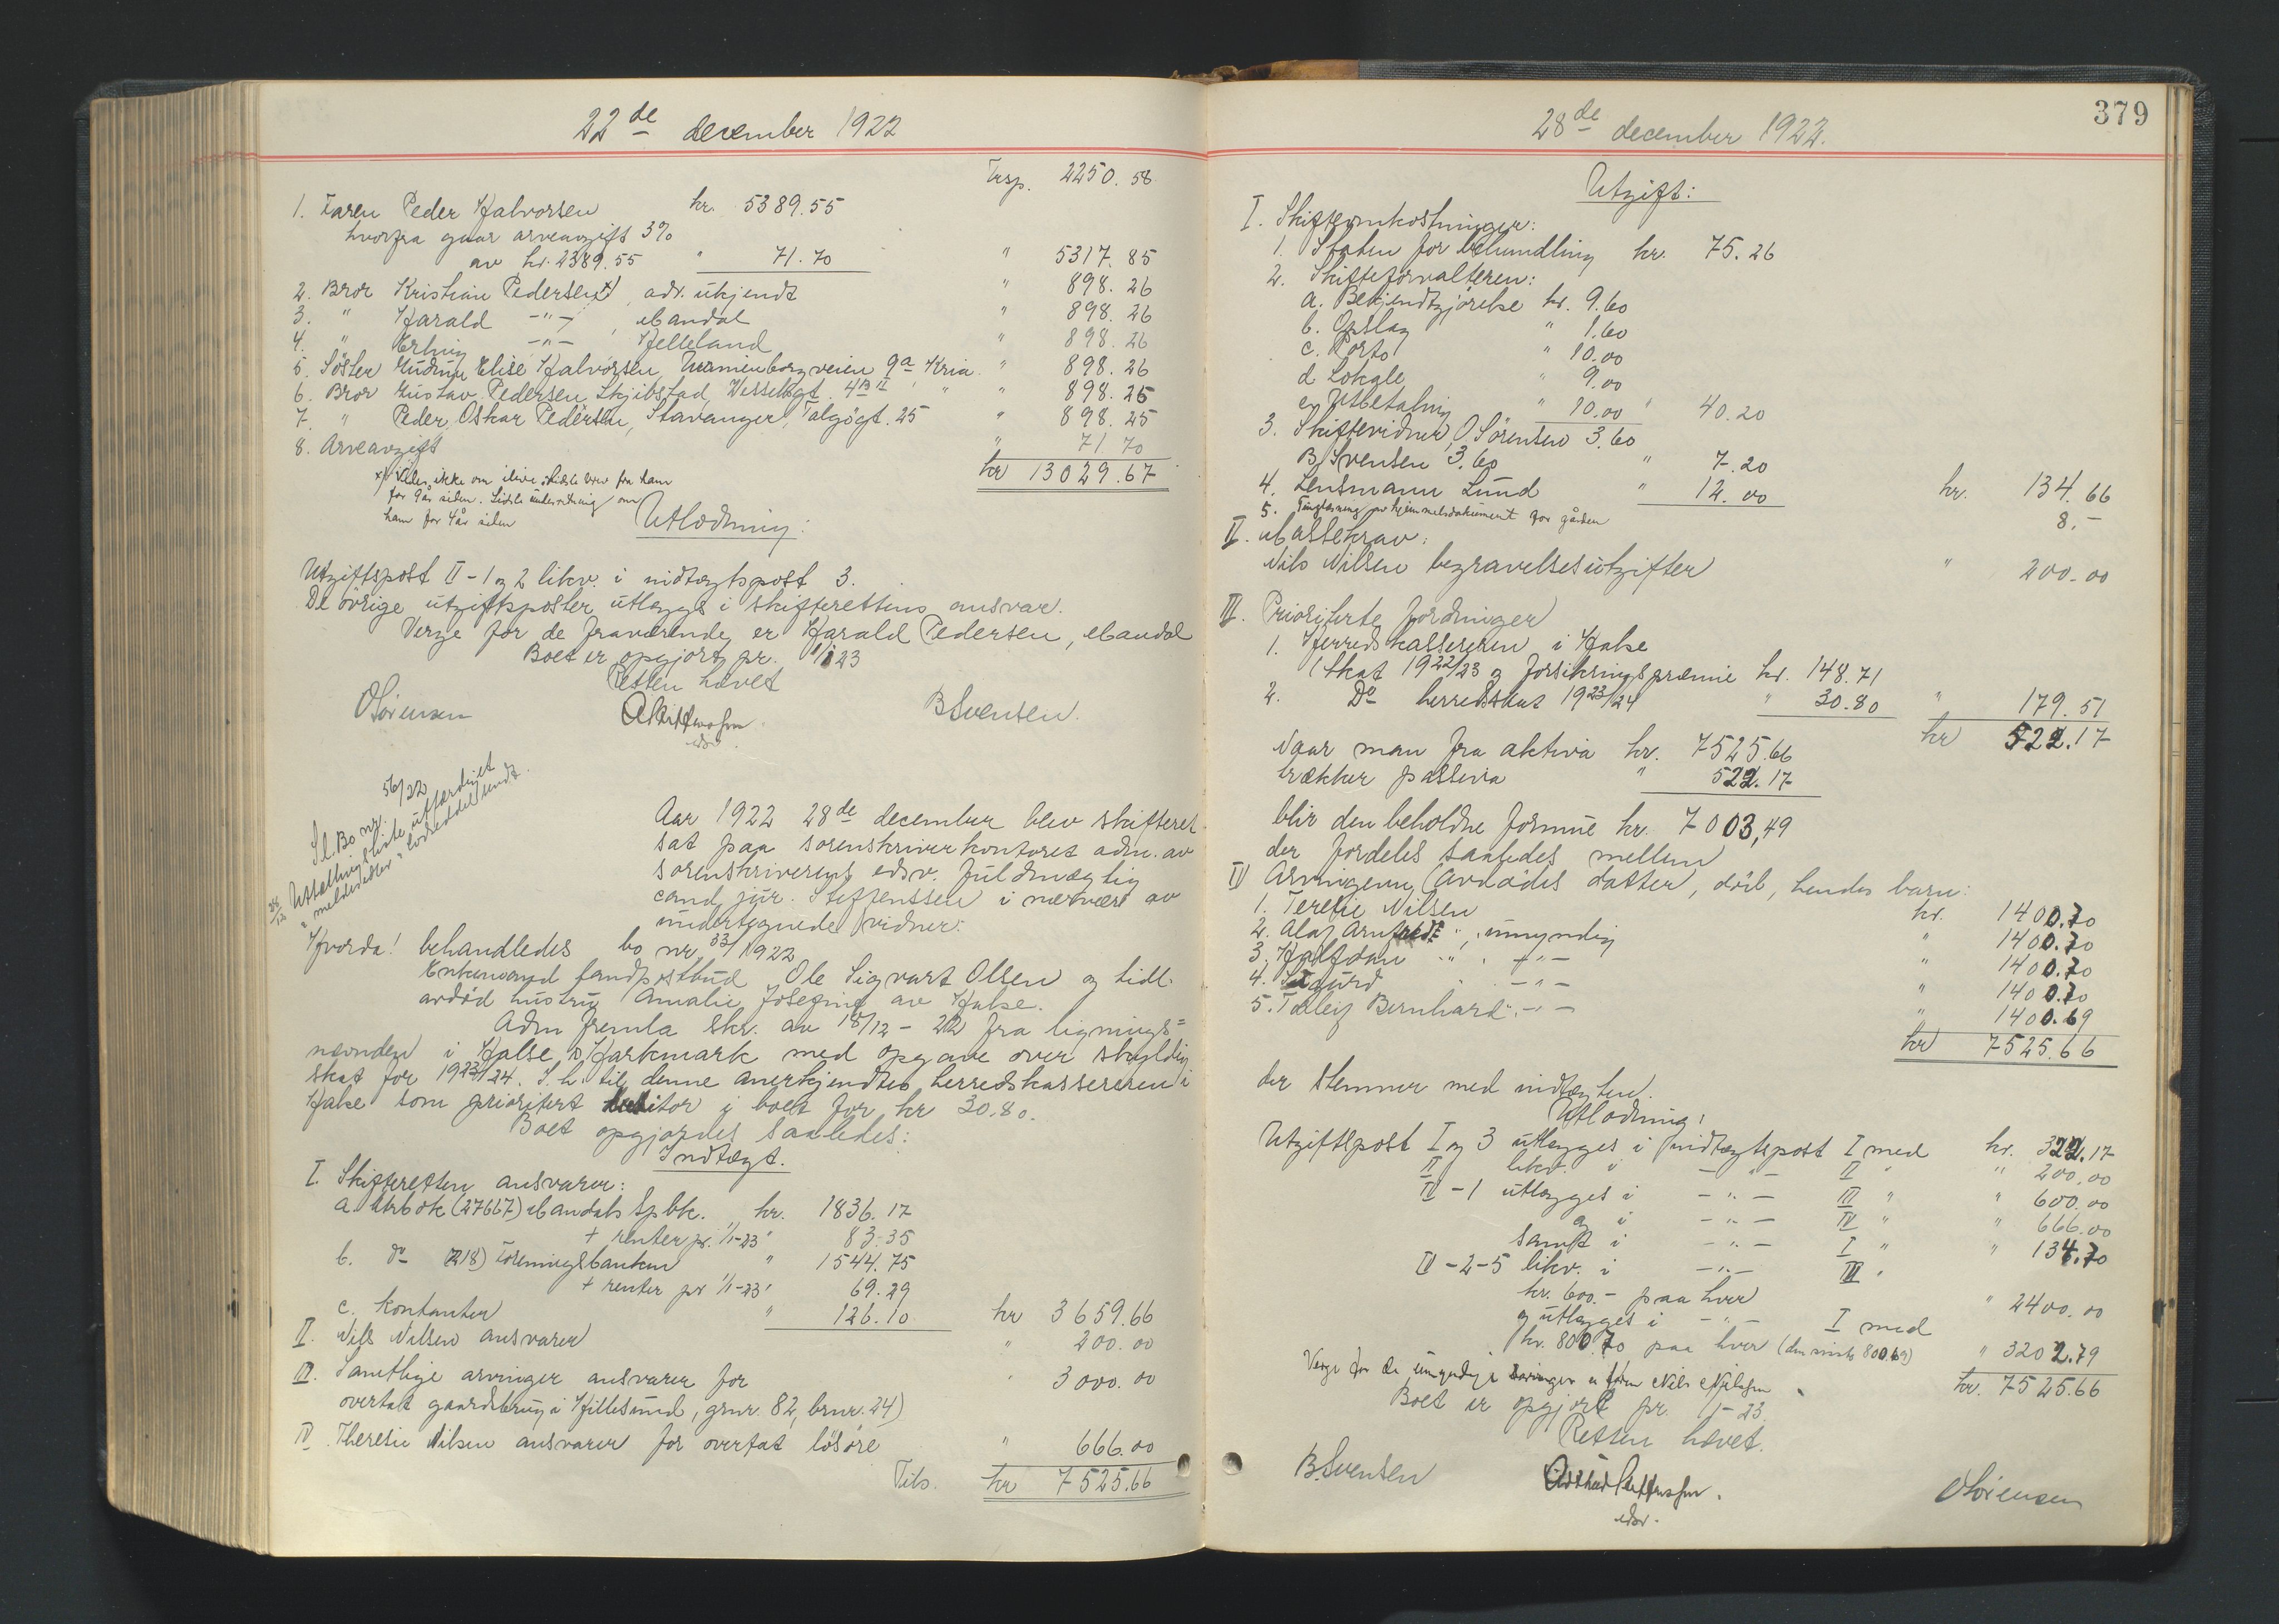 22de december 1922
Trsp. 2250.58
1. Faren Peder Halvorsen kr. 5389.55
hvorfra gaar arveavgift 3%
av kr. 2389.55 " 71.70 " 5317.85
2. Bror Kristian Pedersen x) adr. ukjendt " 898.26
3. " Harald -"- , Mandal " 898.26
4. " Erling -"- Helleland " 898.26
5. Söster Gudrun Elise Halvorsen, Uranienborgveien 9a, Kria. " 898.26
6. Bror Gustav Pedersen Skjibstad, Wesselsgt. 4B II " " 898.25
7. " Peder Oskar Pedersen, Stavanger, Talgögt. 25 " 898.25
8. Arveavgift " 71.70
kr 13029.67
x) Vides ikke om ilive. Sidste brev fra ham
for 9 år siden. Sidste underretning om
ham for 4 år siden
Utlodning:
Utgiftspost II-1 og 2 likv. i indtægtspost 3.
De övrige utgiftsposter utlægges i skifterettens ansvar.
Verge for de fraværende er Harald Pedersen, Mandal
Boet er opgjort pr. 1/1 23
Retten hævet
OSörensen
B Svensen.
edsv.
Sl. Bo nr. 56/22
28/12 Utstedning liste utfærdiget
" meldesedler " lodseddel sendt.
Aar 1922 28de december blev skifteret
sat paa sorenskriverkontoret adm. av
sorenskriverens edsv. fuldmægtig
cand. jur. Steffenssen i nærvær av
undertegnede vidner:
Hvorda! behandledes bo nr. 33/1922
Enkemand landpostbud Ole Sigvart Olsen og tidl.
avdöd hustru Amalie Josefine av Halse.
Adm. fremla skr. av 18/12 - 22 fra lignings=
nævnden i Halse & Harkmark med opgave over skyldig
skat for 1923/24. I h. til denne anerkjendtes herredskassereren i
Halse som prioritert kreditor i boet for kr 30.80.
Boet opgjordes saaledes:
Indtægt.
I. Skifteretten ansvarer:
a. bkbok (27667) Mandals Spbk. kr. 1836.17
+ renter pr. 1/1-23 " 83.35
b. do (218) Foreningsbanken " 1544.75
+ renter pr 1/1-23 " 69.29
c. Kontanter " 126.10 kr 3659.66
II. Nils Nilsen ansvarer " 200.00
III. Samtlige arvinger ansvarer for " 3000.00
overtat gaardsbruk i Hillesund, grnr. 82, brnr. 24)
IV. Theresie Nilsen ansvarer for overtat lösöre " 666.00
Tils. kr 7525.66
379
28de december 1922.
Utgift:
I. Skifteomkostninger:
1. Staten for behandling kr. 75.26
2. Skifteforvalteren:
a. Bekjendtgjörelse kr. 9.60
b. Opslag " 1.60
c. Porto " 10.00
d Lokale " 9.00
e. Utbetaling " 10.00 " 40.20
3. Skiftevidner O Sörensen 3.60
B. Svensen 3.60 " 7.20
4. Lensmann Lund " 12.00 kr. 134.66
5. Tinglæsning av hjemmelsdokument for gården 8.-
II. Massekrav:
Nils Nilsen begravelsesutgifter " 200.00
III. Prioriterte fordringer
1. Herredskassereren i Halse
(Skat 1922/23 og forsikringspræmie kr. 148.71
2. Do herredsskat 1923/24 " 30.80 " 179.51
kr 522.17
Naar man fra aktiva kr. 7525.66
trækker passiva " 522.17
blir den beholdne formue kr. 7003,49
der fordeles saaledes mellem
IV Arvingerne (Avdödes datter, död, hendes barn:
1. Teresie Nilsen kr. 1400.70
2. Olaf Arnfredt " , umyndig " 1400.70
3. Halfdan " . -"- " 1400.70
4. Sigurd . -"- " 1400.70
5. Torleif Bernhard . -"- " 1400.69
kr 7525.66
der stemmer med indtægten.
Utlodning:
Utgiftspost I og 3 utlægges i indtægtspost I med kr. 322.17
II likv. i -"- II " " 200.00
IV-1 utlægges i -"- III " " 600.00
og i -"- IV " " 666.00
samt i -"- I " " 134.70
IV-2-5 likv. i -"- III "
kr. 600.- paa hver " 2400.00
og utlægges i -"- I med
kr. 800.70 paa hver (den sidste 800.69) " 3202.79
Verge for de umyndige arvinger er faren Nils Nilsen
kr. 7525.66
Boet er opgjort pr. 1/1-23.
Retten hævet.
B. Svensen
edsv.
OSörensen